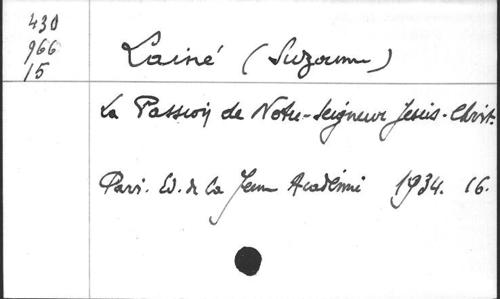 430
966
15
Lainé (Suzanne)
La Passion de Notre-Seigneur Jesus-Christ.
Paris. Ed. de la Jeune Académie 1934. 16.